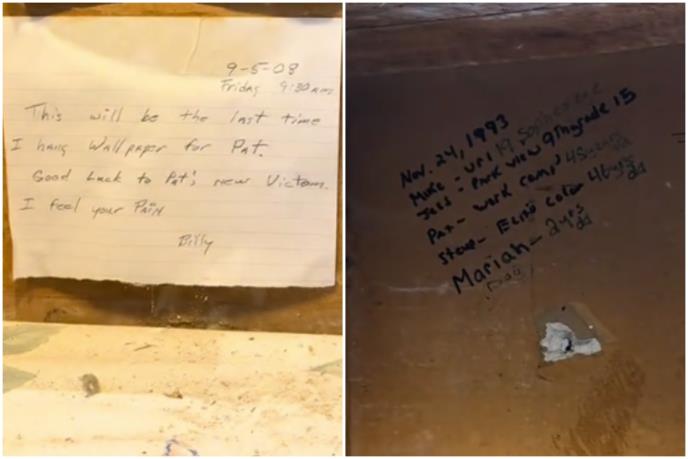 9-5-08
Friday 9:30 AM
This will be the last time
I hang Wallpaper for Pat.
Good Luck to Pat's new Victom.
I feel your PAiN
Billy
Nov. 24, 1993
Mike - URI 19 Sophomore
Jess: Park View 9Thgrade 15
Pat- work camp 45years old
Steve- Elite Color 46yrs old
Mariah- 2yrs old